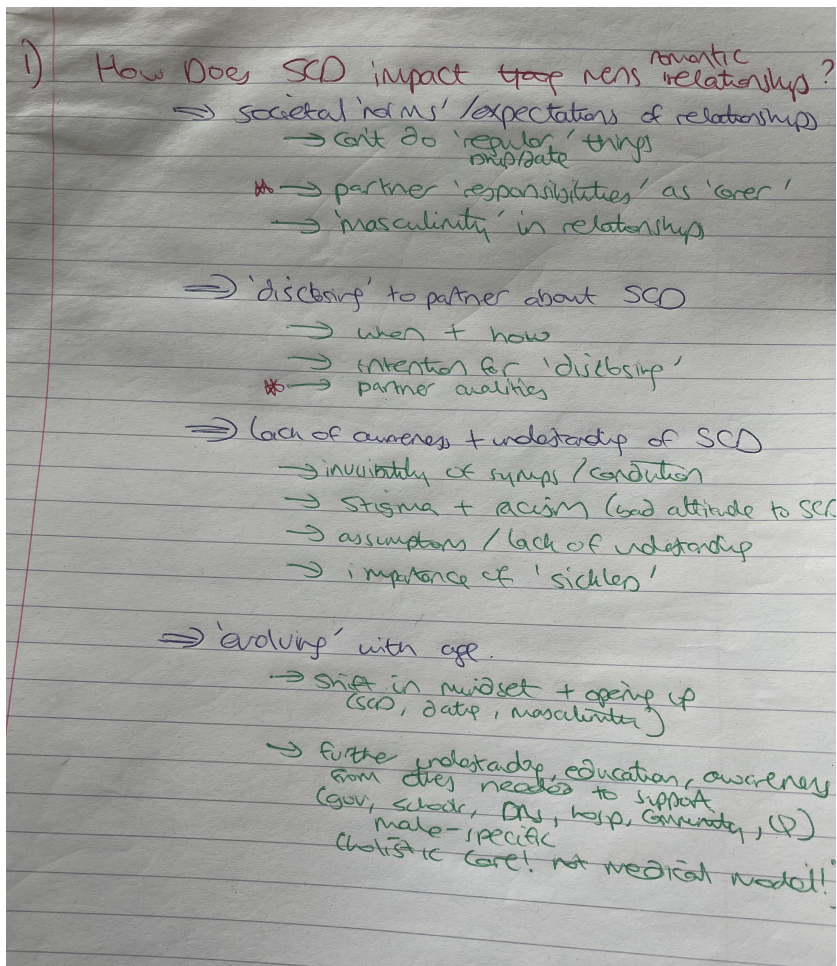 1) How Does SCD impact mens romantic relationship?
⇒ societal 'norms' /expectations of relationships
→ can't do 'regular' things
→ partner 'responsibilities' as 'carer'
→ 'masculinity' in relationships
⇒ 'disclosing' to partner about SCD
→ when + how
→ intention for 'disclosing'
→ partner qualities
⇒ lack of awareness + understanding of SCD
→ invisibility of symps / condition
→ stigma + racism (bad attitude to SCD
→ assumptions / lack of understanding
→ importance of 'sickle'
⇒ 'evolving' with age.
→ shift in mindset + opening up
(SCD, dating, masculinity)
→ further understanding, education, awareness
from others needed to support
(gov, schools, DRs, hosp, community, φ)
male-specific
(holistic care! not medical model!